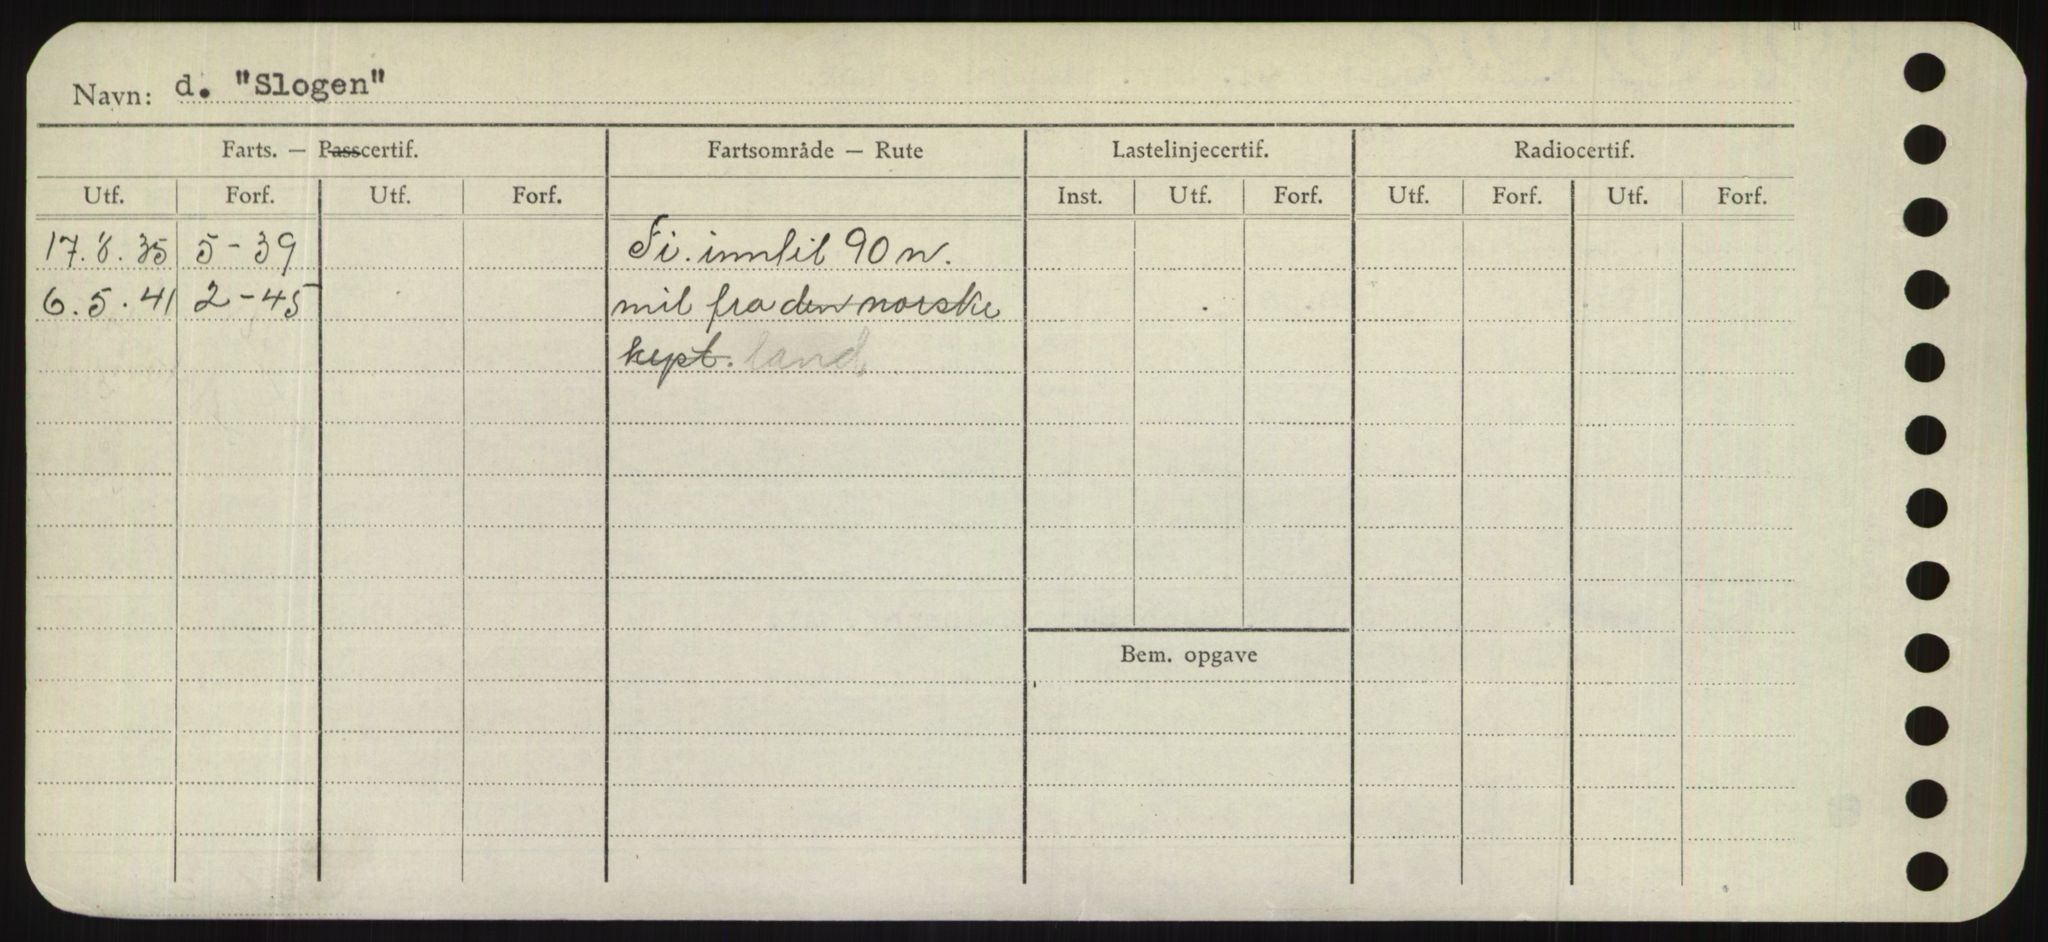 Navn: d. "Slogen"
Farts. — Passcertif. Fartsområde — Rute Lastelinjecertif. Radiocertif.
Utf. Forf. Utf. Forf. Inst. Utf. Forf. Utf. Forf. Utf. Forf.
17.8.35 5-39 Fi. inntil 90 n.
6.5.41 2-45 mil fra den norske
kyst. land
Bem. opgave